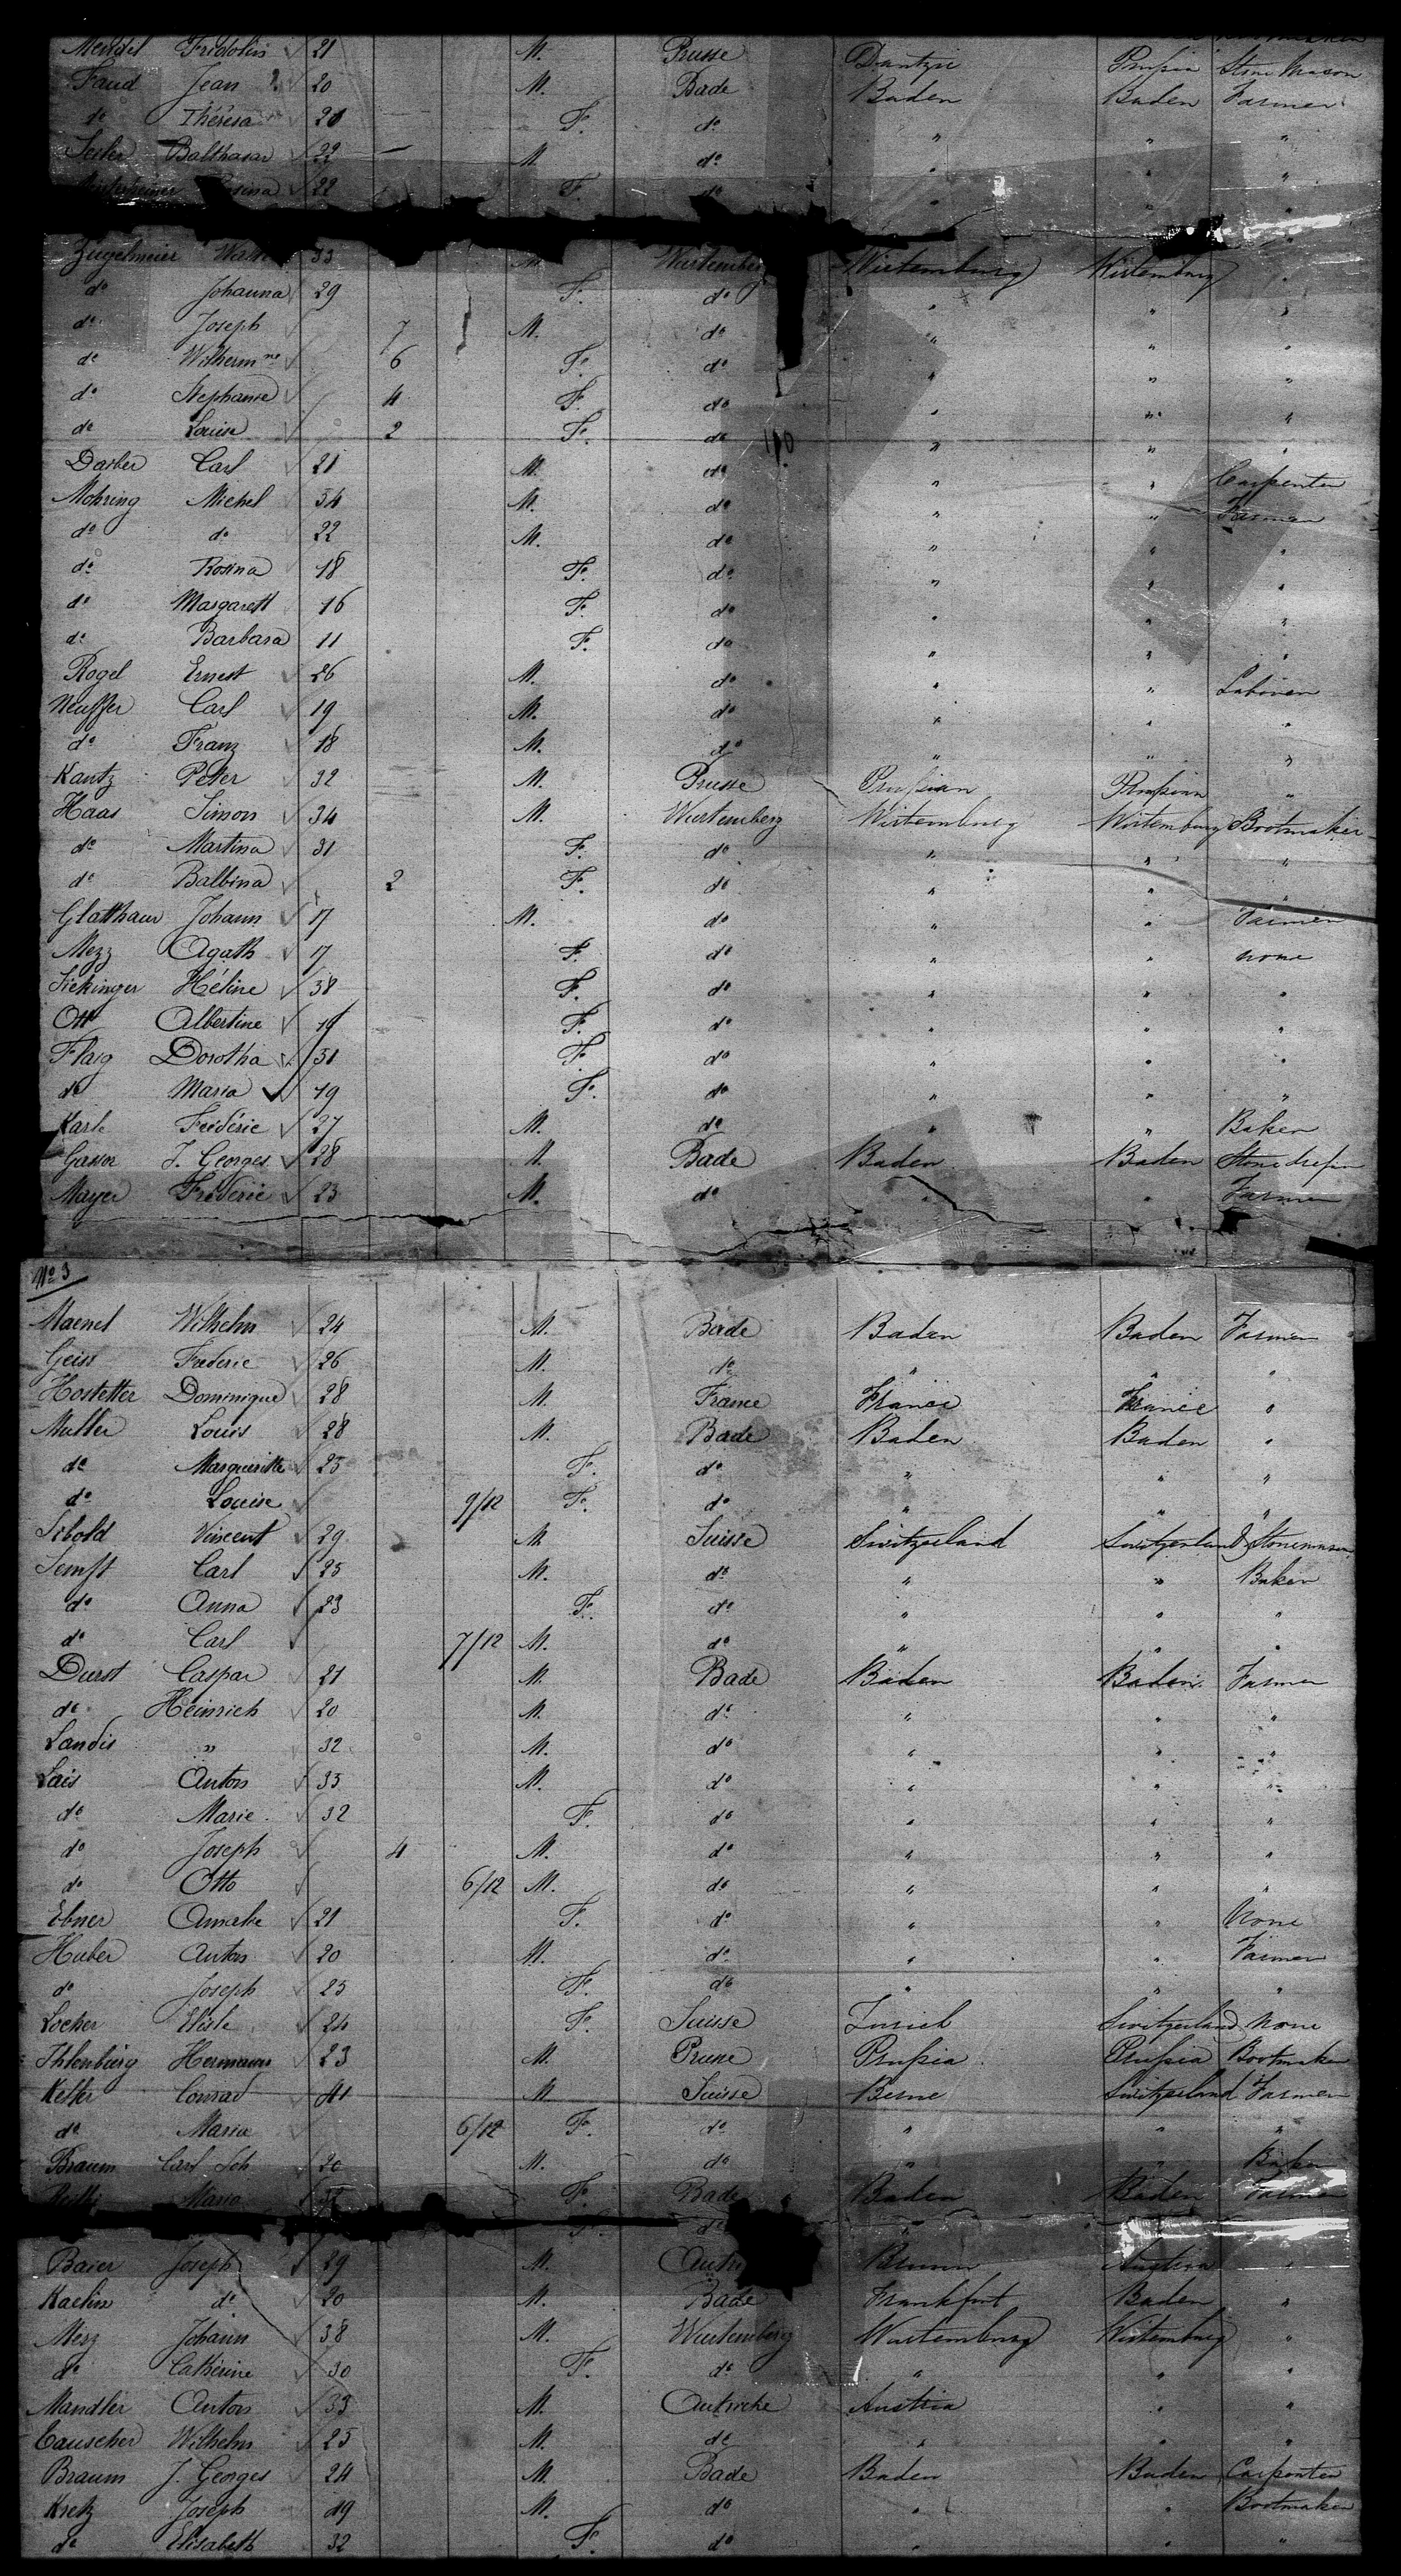 Mendel Fridolin 21 M. Prusse Dantzic Prussia Stone Mason
Faud Jean 20 M. Bade Baden Baden Farmer
do Thérésa 20 F. do " " "
Seiler Balthasar 22 M. do " " "
Rosina 22 F. do " " "
Ziegelmeier 33 M. Wurtemberg Wirtemburg Wirtemburg "
do Johanna 29 F. do " " "
do Joseph 7 M. do " " "
do Wilhermne 6 F. do " " "
do Stephanie 4 F. do " " "
do Louise 2 F. do " " "
Darber Carl 21 M. do " " Carpenter
Mohring Michel 54 M. do " " Farmer
do do 22 M. do " " "
do Rosina 18 F. do " " "
do Margarett 16 F. do " " "
do Barbara 11 F. do " " "
Rogel Ernest 26 M. do " " Laborer
Neuffer Carl 19 M. do " " "
do Franz 18 M. do " " "
Kautz Peter 32 M. Prusse Prussian Prussian "
Haas Simon 34 M. Wurtemberg Wirtemburg Wirtemburg Bootmaker
do Martina 31 F. do " " "
do Balbina 2 F. do " " "
Glatthaur Johann 17 M. do " " Farmer
Mezz Agath 17 F. do " " none
Sickinger Héline 38 F. do " " "
Ott Albertine 19 F. do " " "
Flaig Dorotha 31 F. do " " "
do Maria 19 F. do " " "
Karle Frédéric 27 M. do " " Baker
Gasser J. Georges 28 M. Bade Baden Baden
Mayer Fréderic 23 M. do " " Farmer
No 3
Maenel Wilhelm 24 M. Bade Baden Baden Farmer
Geiss Frederic 26 M. do " " "
Hostetter Dominique 28 M. France France France "
Muller Louis 28 M. Bade Baden Baden "
do Margueritte 23 F. do " " "
do Louise 9/12 F. do " " "
Sibold Vincent 29 M Suisse Switzerland Switzerland Stonemason
Semft Carl 25 M. do " " Baker
do Anna 23 F. do " " "
do Carl 7/12 M. do " " "
Durst Caspar 21 M. Bade Baden Baden Farmer
do Heinrich 20 M. do " " "
Landis " 32 M. do " " "
Lais Anton 33 M. do " " "
do Marie 32 F. do " " "
do Joseph 4 M. do " " "
do Otto 6/12 M. do " " "
Ebner Amalie 21 F. do " " None
Huber Anton 20 M. do " " Farmer
do Joseph 23 F. do " " "
Locher Elisle 24 F. Suisse Zurich Switzerland None
Ihlenburg Hermann 23 M. Prusse Prussia Prussia Bootmaker
Keller Conrad 41 M. Suisse Berne Switzerland Farmer
do Maria 6/12 F. do " " "
Braum Carl Joh 20 M. do " " Baker
Maria F. Bade Baden Baden Farmer
F. do "
Baier Joseph 29 M. Brunn Austria "
Kaelin do 20 M. Bade Frankfort Baden "
Merz Johann 38 M. Wurtemberg Wurtemburg Wirtemburg "
do Catherine 30 F. do " " "
Mandler Anton 33 M. Autriche Austria " "
Causcher Wilhelm 25 M. do " " "
Braum J. Georges 24 M. Bade Baden Baden Carpenter
Kretz Joseph 29 M. do " " Bootmaker
do Elisabeth 32 F. do " " "